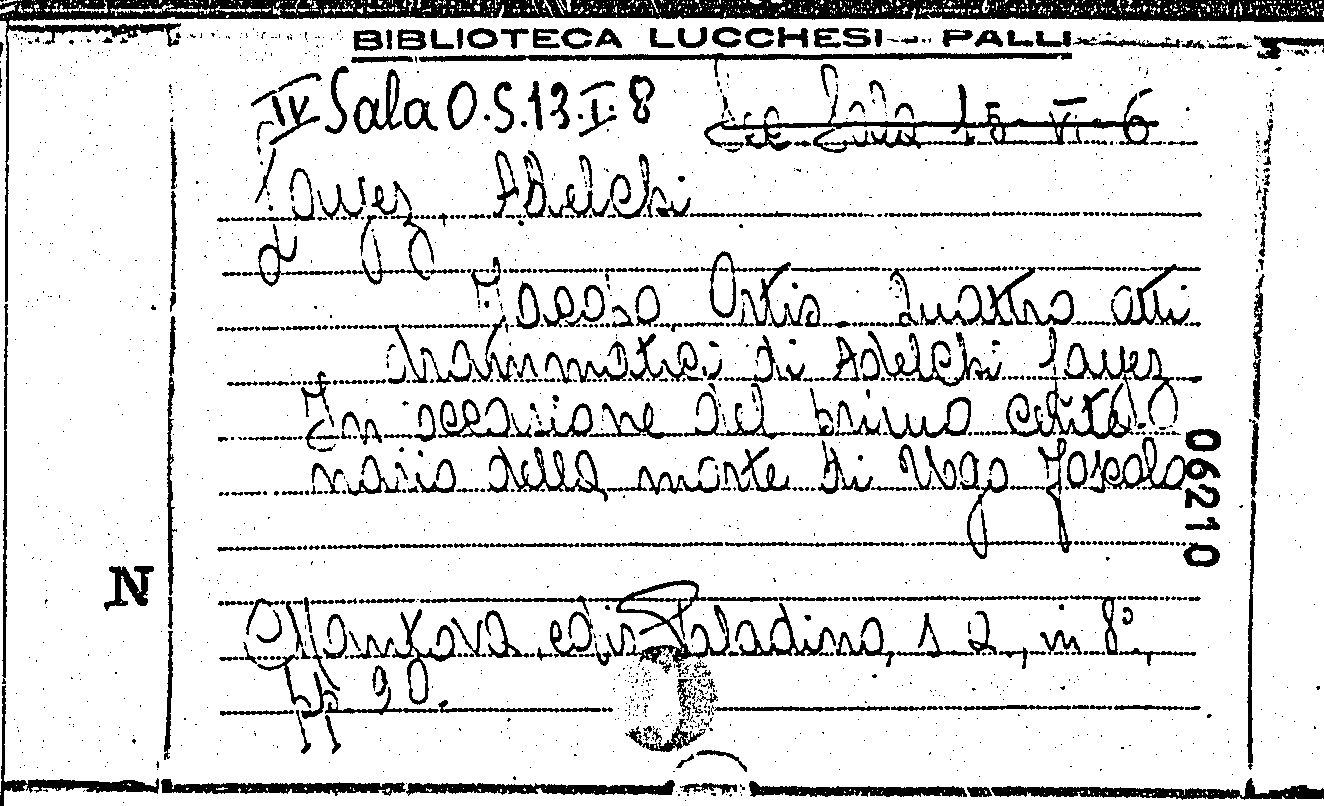 BIBLIOTECA LUCCHESI - PALLI
IV Sala O.S.13.I.8 Sala 15-VI-6
Jayez, Adelchi
Jacopo Ortis. Quattro atti
drammatici di Adelchi Jayez
In occasione del primo cente-
nario della morte di Ugo Foscolo
06210
N
Mantova, ediz Paladino, s a, in 8°,
pp 90.